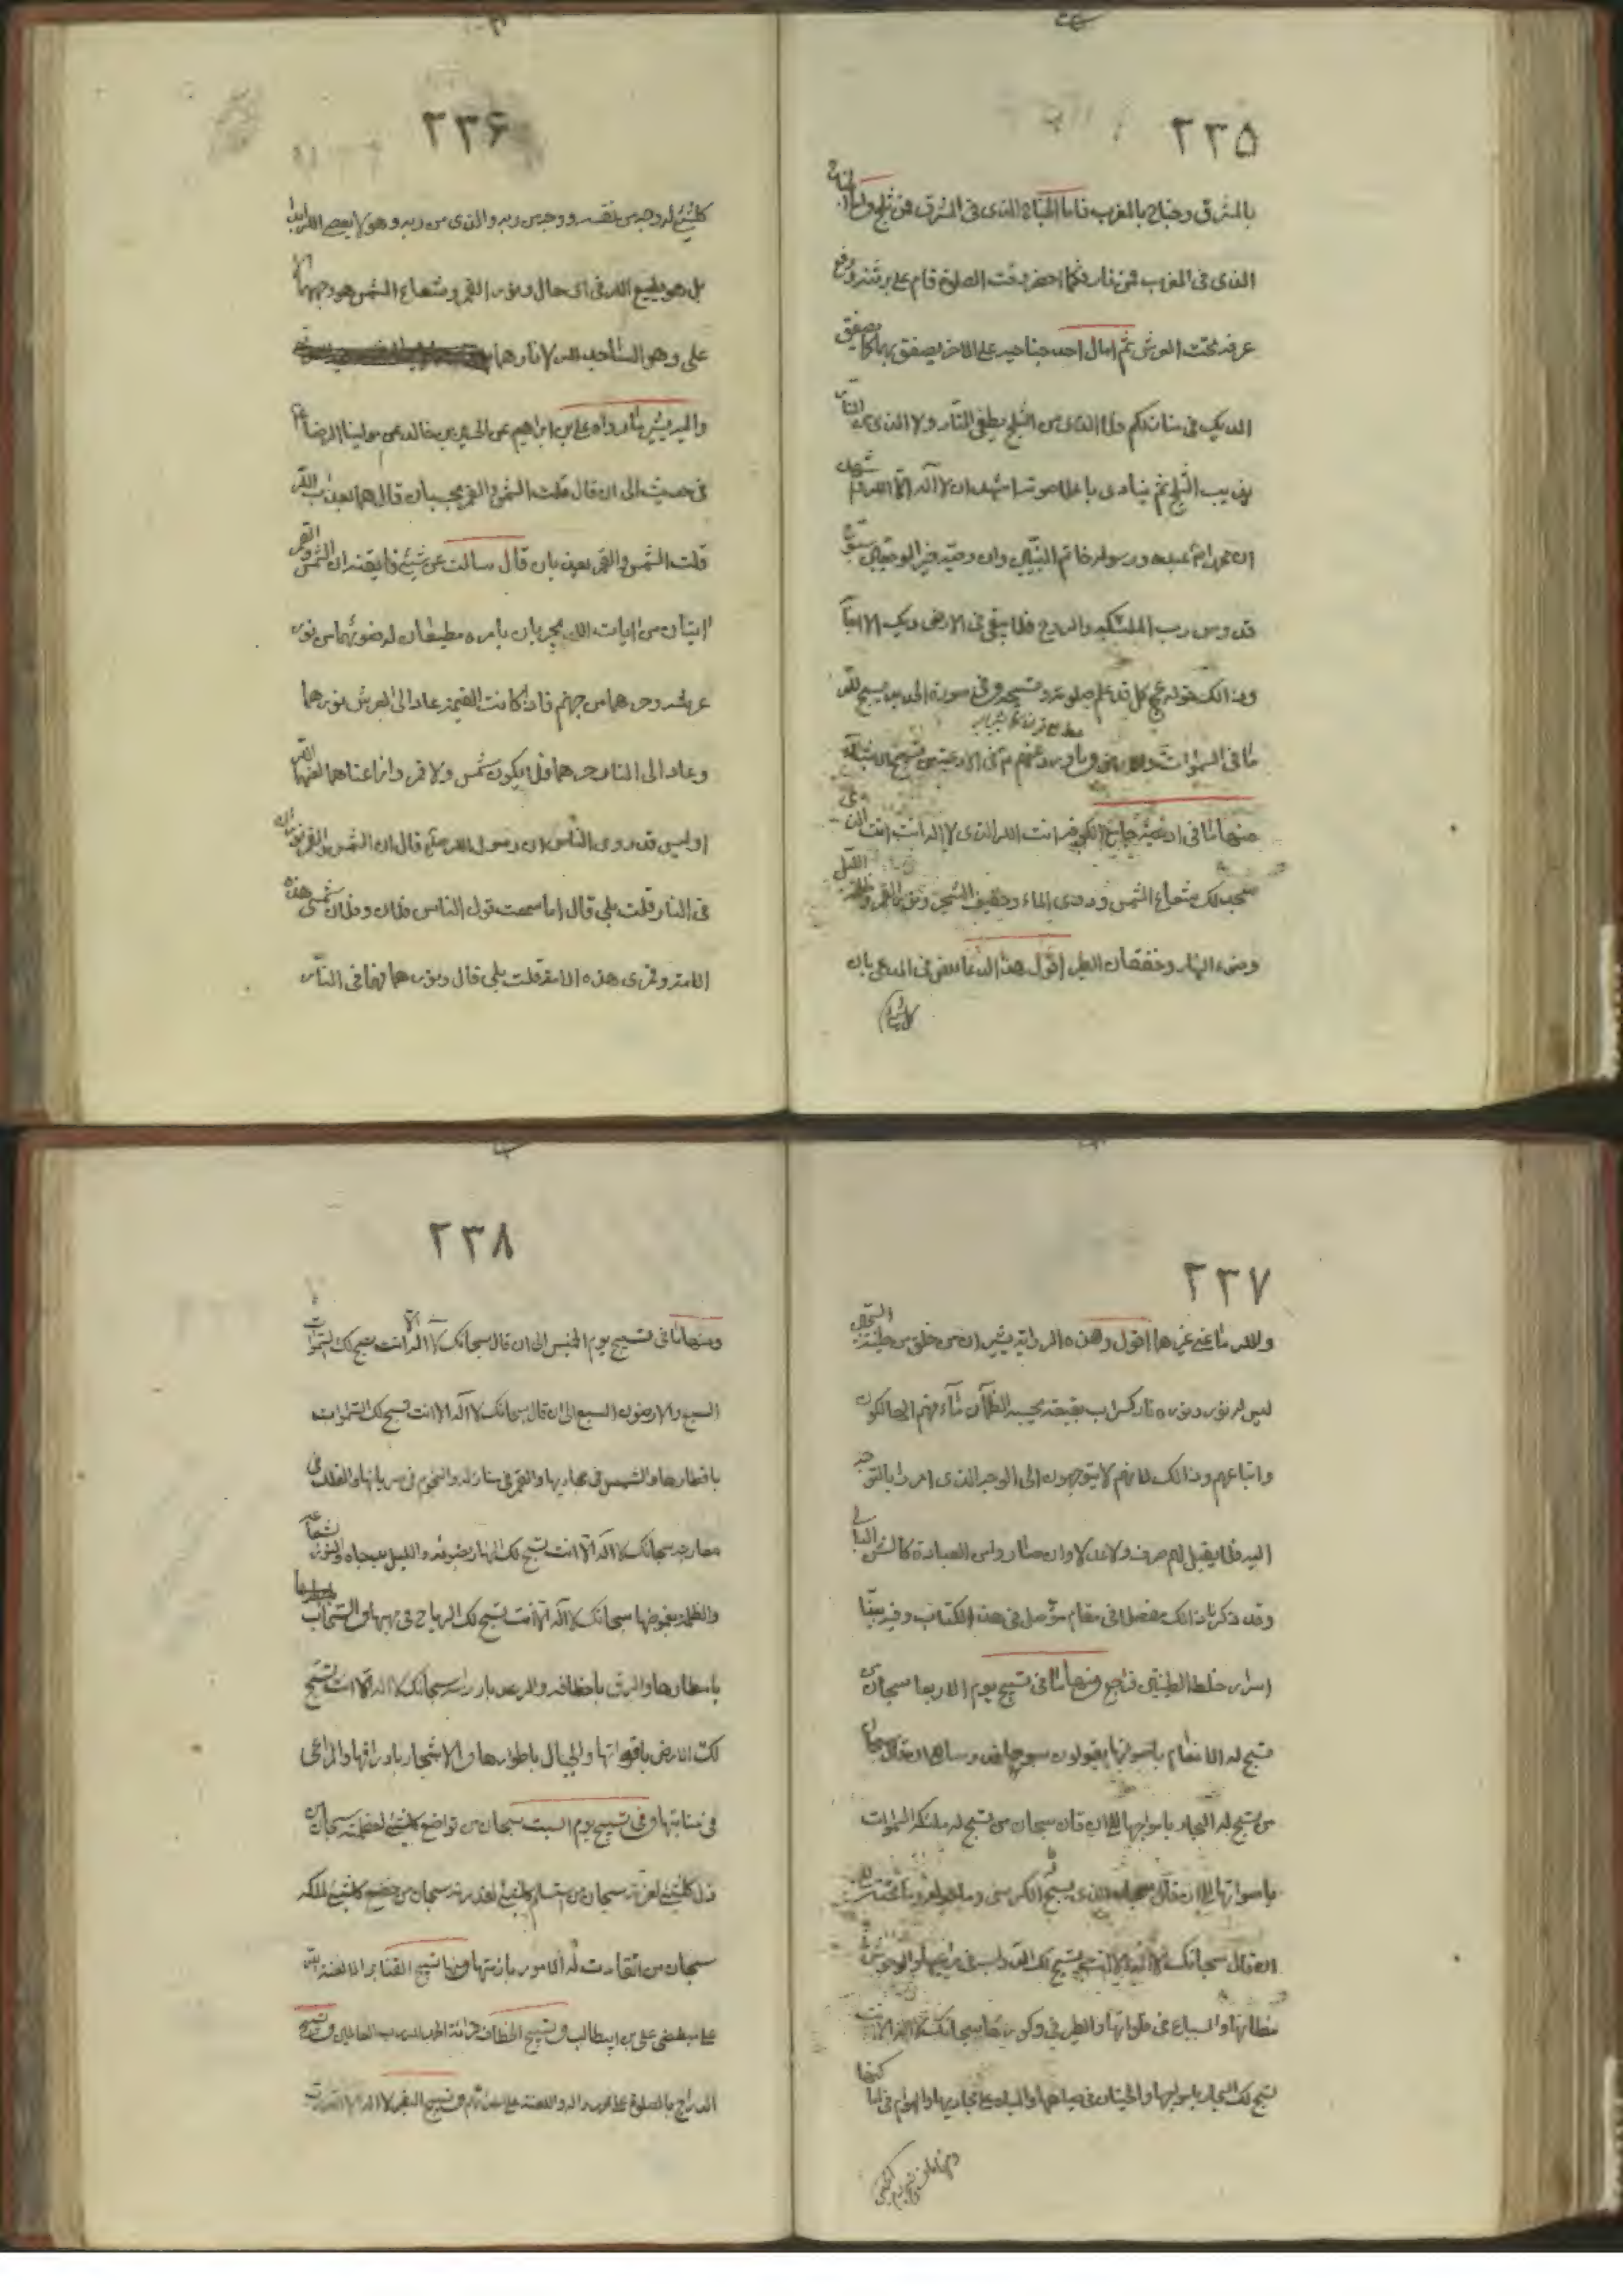 ٢٣٥
بالمشرق وجناح بالمغرب فاما الجناح الذى فى المشرق فمن ثلج واما الجناح
الذى فى المغرب فمن نار فكلما حضر وقت الصلوة قام على برثنه ورفع
عرفه تحت العرش ثم امال احد جناحيه على الاخر يصفق بهما كما يصفق
الديك فى منازلكم فلا الذى من الثلج يطفى النار ولا الذى من النار
يذيب الثلج ثم ينادى باعلا صوته اشهد ان لا آله الا الله واشهد
ان محمدا عبده ورسوله خاتم النبيين وان وصيه خير الوصيين سبوح
قدوس رب الملئكة والروح فلا يبقى فى الارض ديك الا اجابه
وذالك قوله عج كل قد علم صلوته وتسبيحه وفى سورة الحديد يسبح لله
ما فى السموات والارض
منها ما فى ادعية انت الله الذى لا اله الا انت انت الذى
سجد لك شعاع الشمس ودوى الماء وحفيف الشجر ونور القمر وظلمة الليل
وضوء النهار وخفقان الطير اقول هذا الدعاء نص فى المدعى بان
كلشئ
٢٣٦
كلشئ له وجه من نفسه ووجه من ربه والذى من ربه وهو لا يعصى الله ابدا
بل هو يطيع الله فى اى حال ونور القمر وشعاع الشمس هو وجههما الا
على وهو الساجد لله لا نارهما
واليه يشير ما رواه على بن ابراهيم عن الحسين بن خالد عن مولينا الرضا ع
فى حديث الى ان قال قلت الشمس والقمر يعذبان قال هما بعذاب الله
قلت الشمس والقمر يعذبان قال سالت عن شيئ فايقنه ان الشمس والقمر
ايتان من ايات الله يجريان بامره مطيعان له ضوئهما من نور
عرشه وحرهما من جهنم فاذا كانت القيمة عاد الى العرش نورهما
وعاد الى النار حرهما فلا يكون شمس ولا قمر وانما عناهما لعنهما الله
اوليس قد روى الناس ان رسول الله صلع قال ان الشمس والقمر نوران
فى النار قلت بلى قال اما سمعت قول الناس فلان وفلان شمس هذه
الامة وقمرى هذه الامة قلت بلى قال ونورهما فهما فى النار
٢٣٧
والله ما عنى غيرهما اقول وهذه الرواية يشير ان من خلق من طينة السجين
ليس له نور ونوره نار كسراب بقيعة يحسبه الظمآن مآء فهم الهالكون
واتباعهم وذالك لانهم لا يتوجهون الى الوجه الذى امروا بالتوجه
اليه فلا يقبل لهم صرف ولا عدل وان صاروا من العبادة كالشن البالى
وقد ذكرنا ذالك مفصلا فى مقام مؤصل فى هذا الكتاب وفيه بينا
اسرار خلط الطينتين فراجع ومنها ما فى تسبيح يوم الاربعا سبحان من
تسبح له الانعام باصواتها يقولون سبوحا قدوسا الى ان قال سبحان
من تسبح له البحار بامواجها الى ان قال سبحان من تسبح له ملئكة السموات
باصواتها الى ان قال سبحان الذى يسبح له الكرسى وما حوله وما تحته
الى ان قال سبحانك لا آله الا انت تسبح لك الدواب فى مراعيها والوحوش فى
مظانها والسباع فى فلواتها والطير فى وكورها سبحانك لا اله الا انت
تسبح لك البحار بامواجها والحيتان فى مياهها والمياه على مجاريها والهوام فى اماكنها
ومنها ما فى تسبيح يوم الخميس
٢٣٨
ومنها ما فى تسبيح يوم الخميس الى ان قال سبحانك لا اله الا انت يسبح لك السموات
السبع والارضون السبع الى ان قال سبحانك لا آله الا انت تسبح لك السموات
باقطارها والشمس فى مجاريها والقمر فى منازله والنجوم فى سريانها والفلك فى
معارجه سبحانك لا آله الا انت تسبح لك النهار بضوئه والليل بدجاه والنور بشعاعه
والظلمة بغموضها سبحانك لا آله الا انت تسبح لك الرياح فى مهبها والسحاب
بامطارها والبرق باخطافه والرعد بارزامه سبحانك لا اله الا انت تسبح
لك الارض باقواتها والجبال باطوارها والاشجار باوراقها والمراعى
فى منابتها وفى تسبيح يوم السبت سبحان من تواضع كلشئ لعظمته سبحان من
ذل كلشئ لعزته سبحان من استسلم كلشئ لقدرته سبحان من خضع كلشئ لملكه
سبحان من انقادت له الامور بازمتها ومنها تسبيح القنابر الا لعنة الله
على مبغضى على بن ابيطالب وتسبيح الخطاف قرائة الحمد لله رب العالمين وتسبيح
الدراج بالصلوة على محمد واله واللعنة على